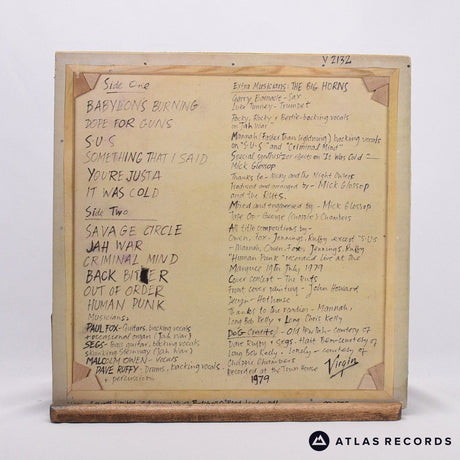 V 2132
Side One
BABYLON'S BURNING
DOPE FOR GUNS
S.U.S
SOMETHING THAT I SAID
YOU'RE JUSTA
IT WAS COLD
Side Two
SAVAGE CIRCLE
JAH WAR
CRIMINAL MIND
BACK BITER
OUT OF ORDER
HUMAN PUNK
Musicians:
PAUL FOX - Guitars, backing vocals
+ occasional organ (Jah War)
SEGS - Bass guitar, backing vocals
skanking Steinway (Jah War)
MALCOLM OWEN - Vocals
DAVE RUFFY - Drums, backing vocals
+ percussion
Extra Musicians: THE BIG HORNS
Garry Barnacle - Sax
Luke Tunney - Trumpet
Rocky + Bertie - backing vocals
on Jah War
Mannah (Faster than Lightning) backing vocals
on "S.U.S" and "Criminal Mind"
Special synthesizer effects on "It Was Cold" -
Mick Glossop
Thanks to - Nicky and the Night Owlers
Produced and arranged by - Mick Glossop
and the Ruts.
Mixed and engineered by - Mick Glossop
Tape Op - George (Chambo) Chambers
All title compositions by -
Owen, Fox, Jennings, Ruffy except "S.U.S"
- Mannah, Owen, Fox, Jennings, Ruffy
"Human Punk" recorded live at the
Marquee 19th July 1979
Cover concept - The Ruts
Front cover painting - John Howard
Design - Hothouse
Thanks to the roadies - Mannah,
Long Bob Kelly + Long Chris Kelly
DOG Credits) - courtesy of
Dave Ruffy + Segs.
Long Bob Kelly - courtesy of
Recorded at the Town House
Virgin
1979
ATLAS RECORDS